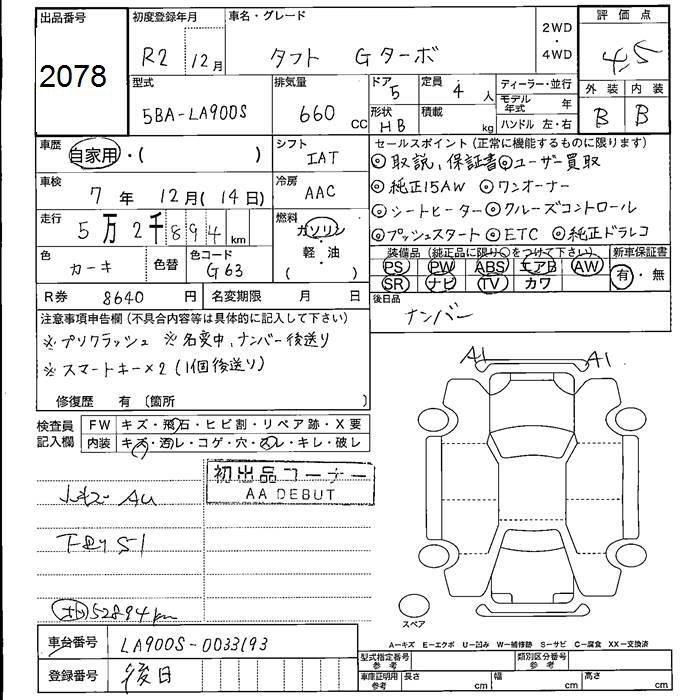 出品番号 初度登録年月 車名・グレード 2WD ・ 4WD 評価点
2078 R2 12月 タフト Gターボ 4.5
型式 5BA-LA900S 排気量 660 CC ドア 5 定員 4 人 ディーラー・並行 外装 内装
形状 HB 積載 kg モデル年式 年 ハンドル 左・右 B B
車歴 自家用・( ) シフト IAT セールスポイント(正常に機能するものに限ります)
◎取説、保証書◎ユーザー買取
車検 7年 12月(14日) 冷房 AAC ◎純正15AW ◎ワンオーナー
走行 5万2千894km 燃料 ガソリン・軽・油( ) ◎シートヒーター◎クルーズコントロール
◎プッシュスタート◎ETC ◎純正ドラレコ
色 カーキ 色替 色コード G63 装備品(純正品に限り○をつけて下さい) 新車保証書
PS PW ABS エアB AW 有・無
SR ナビ TV カワ
R券 8640円 名変期限 月 日 後日品
ナンバー
注意事項申告欄(不具合内容等は具体的に記入して下さい)
※プリクラッシュ ※名変中、ナンバー後送り
※スマートキー×2(1個後送り)
A1 A1
修復歴 有 〔箇所 〕
検査員記入欄 FW キズ・飛石・ヒビ割・リペア跡・X要
内装 キズ・汚レ・コゲ・穴・スレ・キレ・破レ
初出品コーナー
AA DEBUT
AU
S1
52894km
スペア
車台番号 LA900S-0033193
A-キズ E-エクボ U-凹み W-補修跡 S-サビ C-腐食 XX-交換済
型式指定番号 参考 類別区分番号 参考
登録番号 後日 車庫証明用 参考 長さ cm 幅 cm 高さ cm